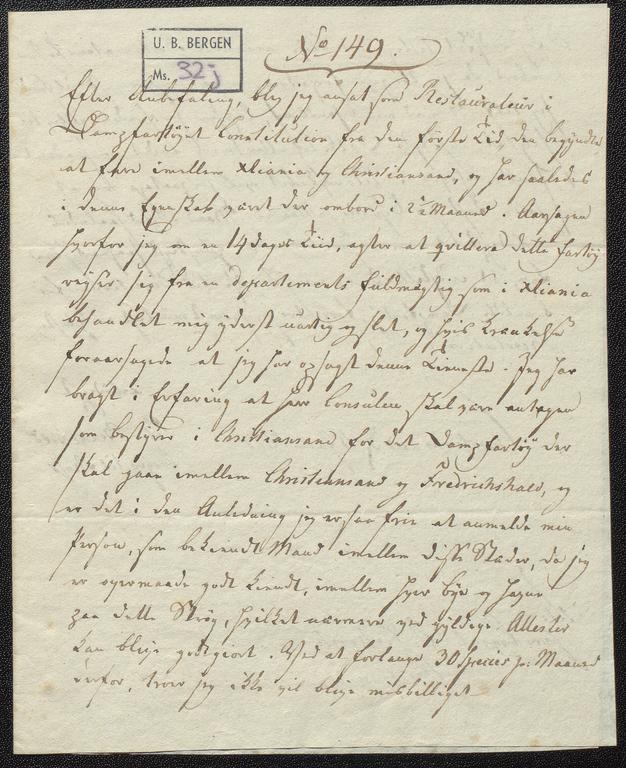 U. B. BERGEN
Ms. 32j
No 149.
Efter Anbefaling, blev jeg ansat som Restaurateur i
Dampfartøyet Constitution fra den første Tid, den begyndte
at fare imellem Xtiania og Christiansand, og har saaledes
i denne Egenskab været der ombord i 2 Maaned. Aarsagen
hvorfor jeg om en 14 dages Tiid, agter at qvittere dette Fartøy
reyser sig fra en departements fuldmægtig som i Xtiania
behandlet mig yderst uartig og slet, og hvis Krænkelse
foraarsagede at jeg har opsagt denne Tieneste. Jeg har
bragt i Erfaring at Herr Consulen skal være antagen
som bestyrer i Christiansand for det Dampfartøy der
skal gaae imellem Christiansand og Fredrichshald, og
er det i den Anledning jeg er saa frie at anmelde min
Person, som bekiendt Mand imellem disse Stæder, da jeg
er overmaade godt kiendt, imellem hver bye og Havn
paa dette Strøg, hvilket nærmere ved gyldige Attester
kan blive godtgiort. Ved at forlange 30 Species pr: Maaned
derfor, troer jeg ikke vil blive misbilliget